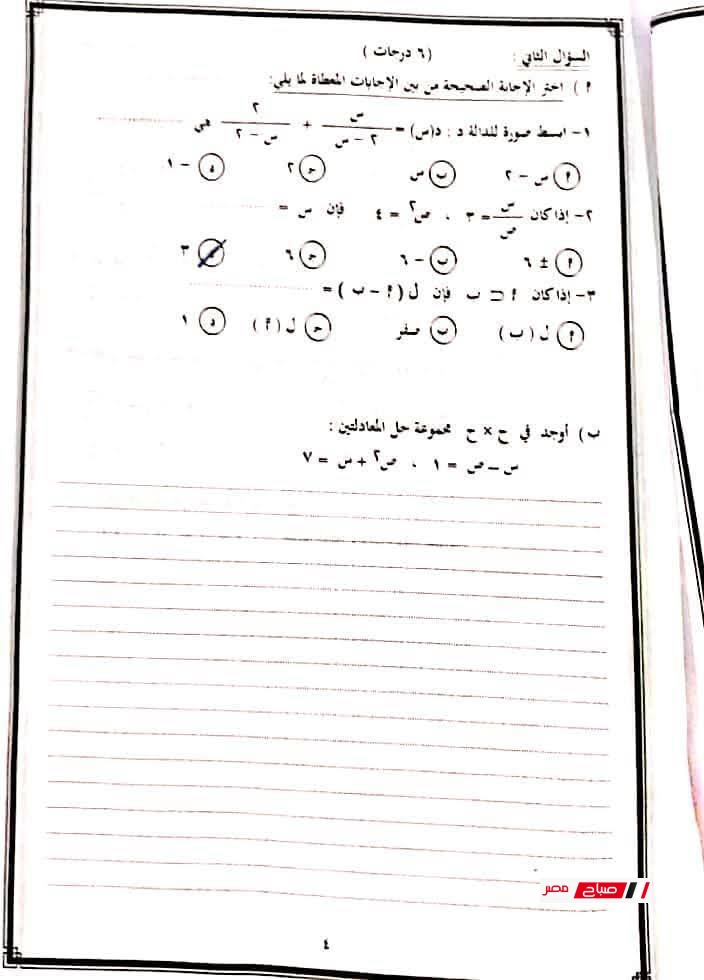 السؤال الثاني : (٦ درجات )
٩ ) اختر الإجابة الصحيحة من بين الإجابات المعطاة لما يلي:
١- ابسط صورة للدالة د : د(س) = س / ٢ - س + ٢ / س - ٢ هي ............
٩ س - ٢ ب س ج ٢ د - ١
٢- إذا كان س / ص = ٣ ، ص٢ = ٤ فإن س = ............
٩ ± ٦ ب - ٦ ج ٦ د ٣
٣- إذا كان ٩ ⊂ ب فإن ل ( ٩ - ب ) = ............
٩ ل ( ب ) ب صفر ج ل ( ٩ ) د ١
ب) أوجد في ح × ح مجموعة حل المعادلتين :
س - ص = ١ ، ص٢ + س = ٧
صباح مصر
٤